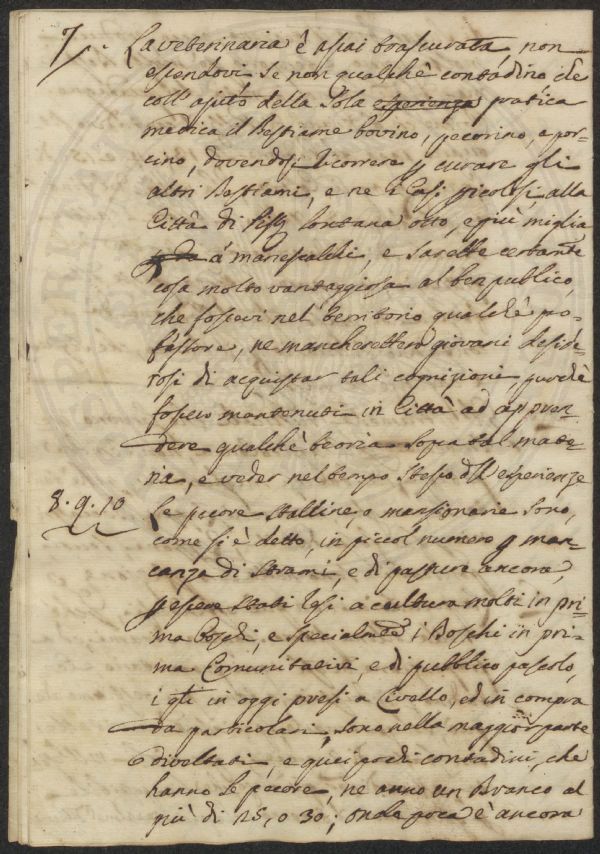 7. La veterinaria è assai trascurata non
essendovi se non qualchè contadino che
coll' ajuto della sola esperienza pratica
medica il Bestiame bovino, pecorino, e por-
cino, dovendosi ricorrere p curare gli
altri Bestiami, e ne i Casi picolosi alla
Città di lontana otto, e più miglia
à manescalchi, e sarebbe certamte
cosa molto vantaggiosa al ben publico,
che fossevi nel territorio qualchè pro-
fessore, ne mancherebbero giovani deside-
rosi di acquistar tali cognizioni, purchè
fossero mantenuti in Città ad appren-
dere qualchè teoria sopra tal mate-
ria, e veder nel tempo stesso dll'esperienze
8. 9. 10 Le pecore stalline, o mansionarie sono,
come si è detto, in piccol numero p man-
canza di strami, e di pasture ancora,
p essere stati resi a cultura molti in pri-
ma Boschi, e specialmte i Boschi in pri-
ma Comunitativi, e di pubblico pascolo,
i qli in oggi presi a Livello, ed in compra
da particolari, sono nella maggior parte
divoltati, e quei pochi contadini, che
hanno le pecore, ne anno un Branco al
più di 25, o 30; onde poca è ancora